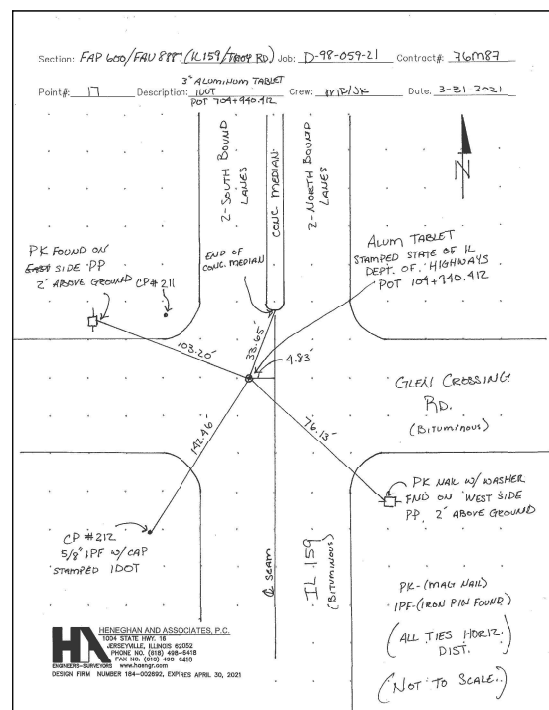 Section: FAP 600/FAU 8888 (IL159/TROY RD) Job: D-98-059-21 Contract#: 76M87
3" ALUMINUM TABLET
Point#: 17 Description: IDOT Crew: Date: 3-31-2021
POT 104+940.412
2-SOUTH BOUND
LANES
CONC. MEDIAN
2-NORTH BOUND
LANES
N
PK FOUND ON
EAST SIDE PP
2' ABOVE GROUND
CP#211
END OF
CONC. MEDIAN
ALUM TABLET
STAMPED STATE OF IL
DEPT. OF HIGHWAYS
POT 104+940.412
103.20'
33.65'
4.83'
GLEN CROSSING
RD.
(BITUMINOUS)
142.46'
76.13'
PK NAIL W/ WASHER
FND ON WEST SIDE
PP, 2' ABOVE GROUND
CP #212
5/8" IPF W/ CAP
STAMPED IDOT
℄ SEAM
IL 159
(BITUMINOUS)
PK-(MAG NAIL)
IPF-(IRON PIN FOUND)
(ALL TIES HORIZ.
DIST.)
(NOT TO SCALE.)
HA
HENEGHAN AND ASSOCIATES, P.C.
1004 STATE HWY. 16
JERSEYVILLE, ILLINOIS 62052
PHONE NO. (618) 498-6418
FAX NO. (618) 498-6410
ENGINEERS-SURVEYORS www.haengr.com
DESIGN FIRM NUMBER 184-002692, EXPIRES APRIL 30, 2021